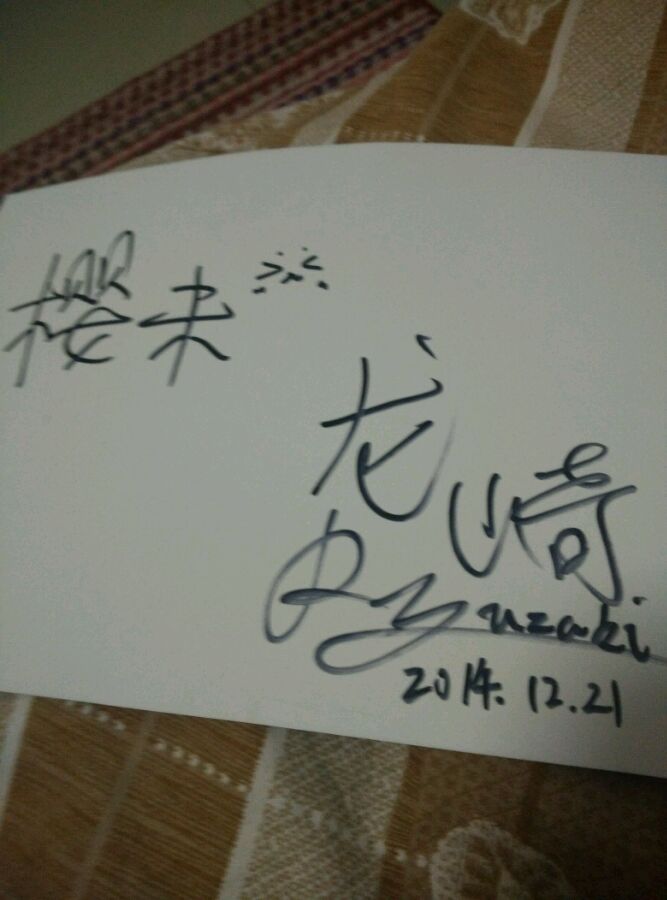 樱未
龙崎
Ryuzaki
2014.12.21